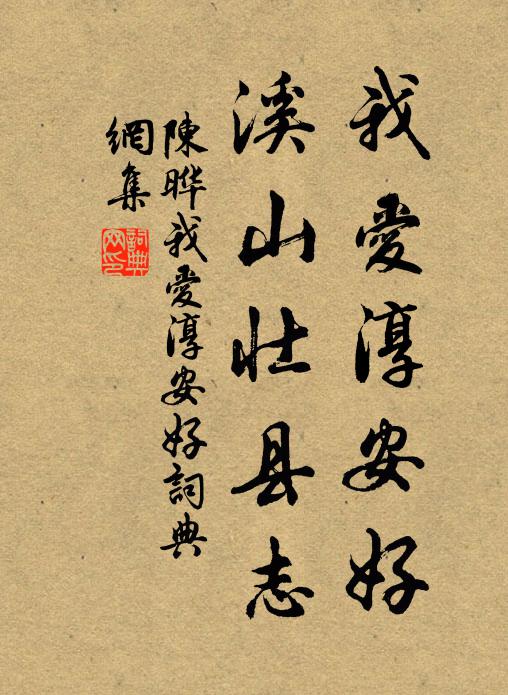 我愛淳安好
溪山壮县志
陳晔我愛淳安好詞典
網集
詞典
网印